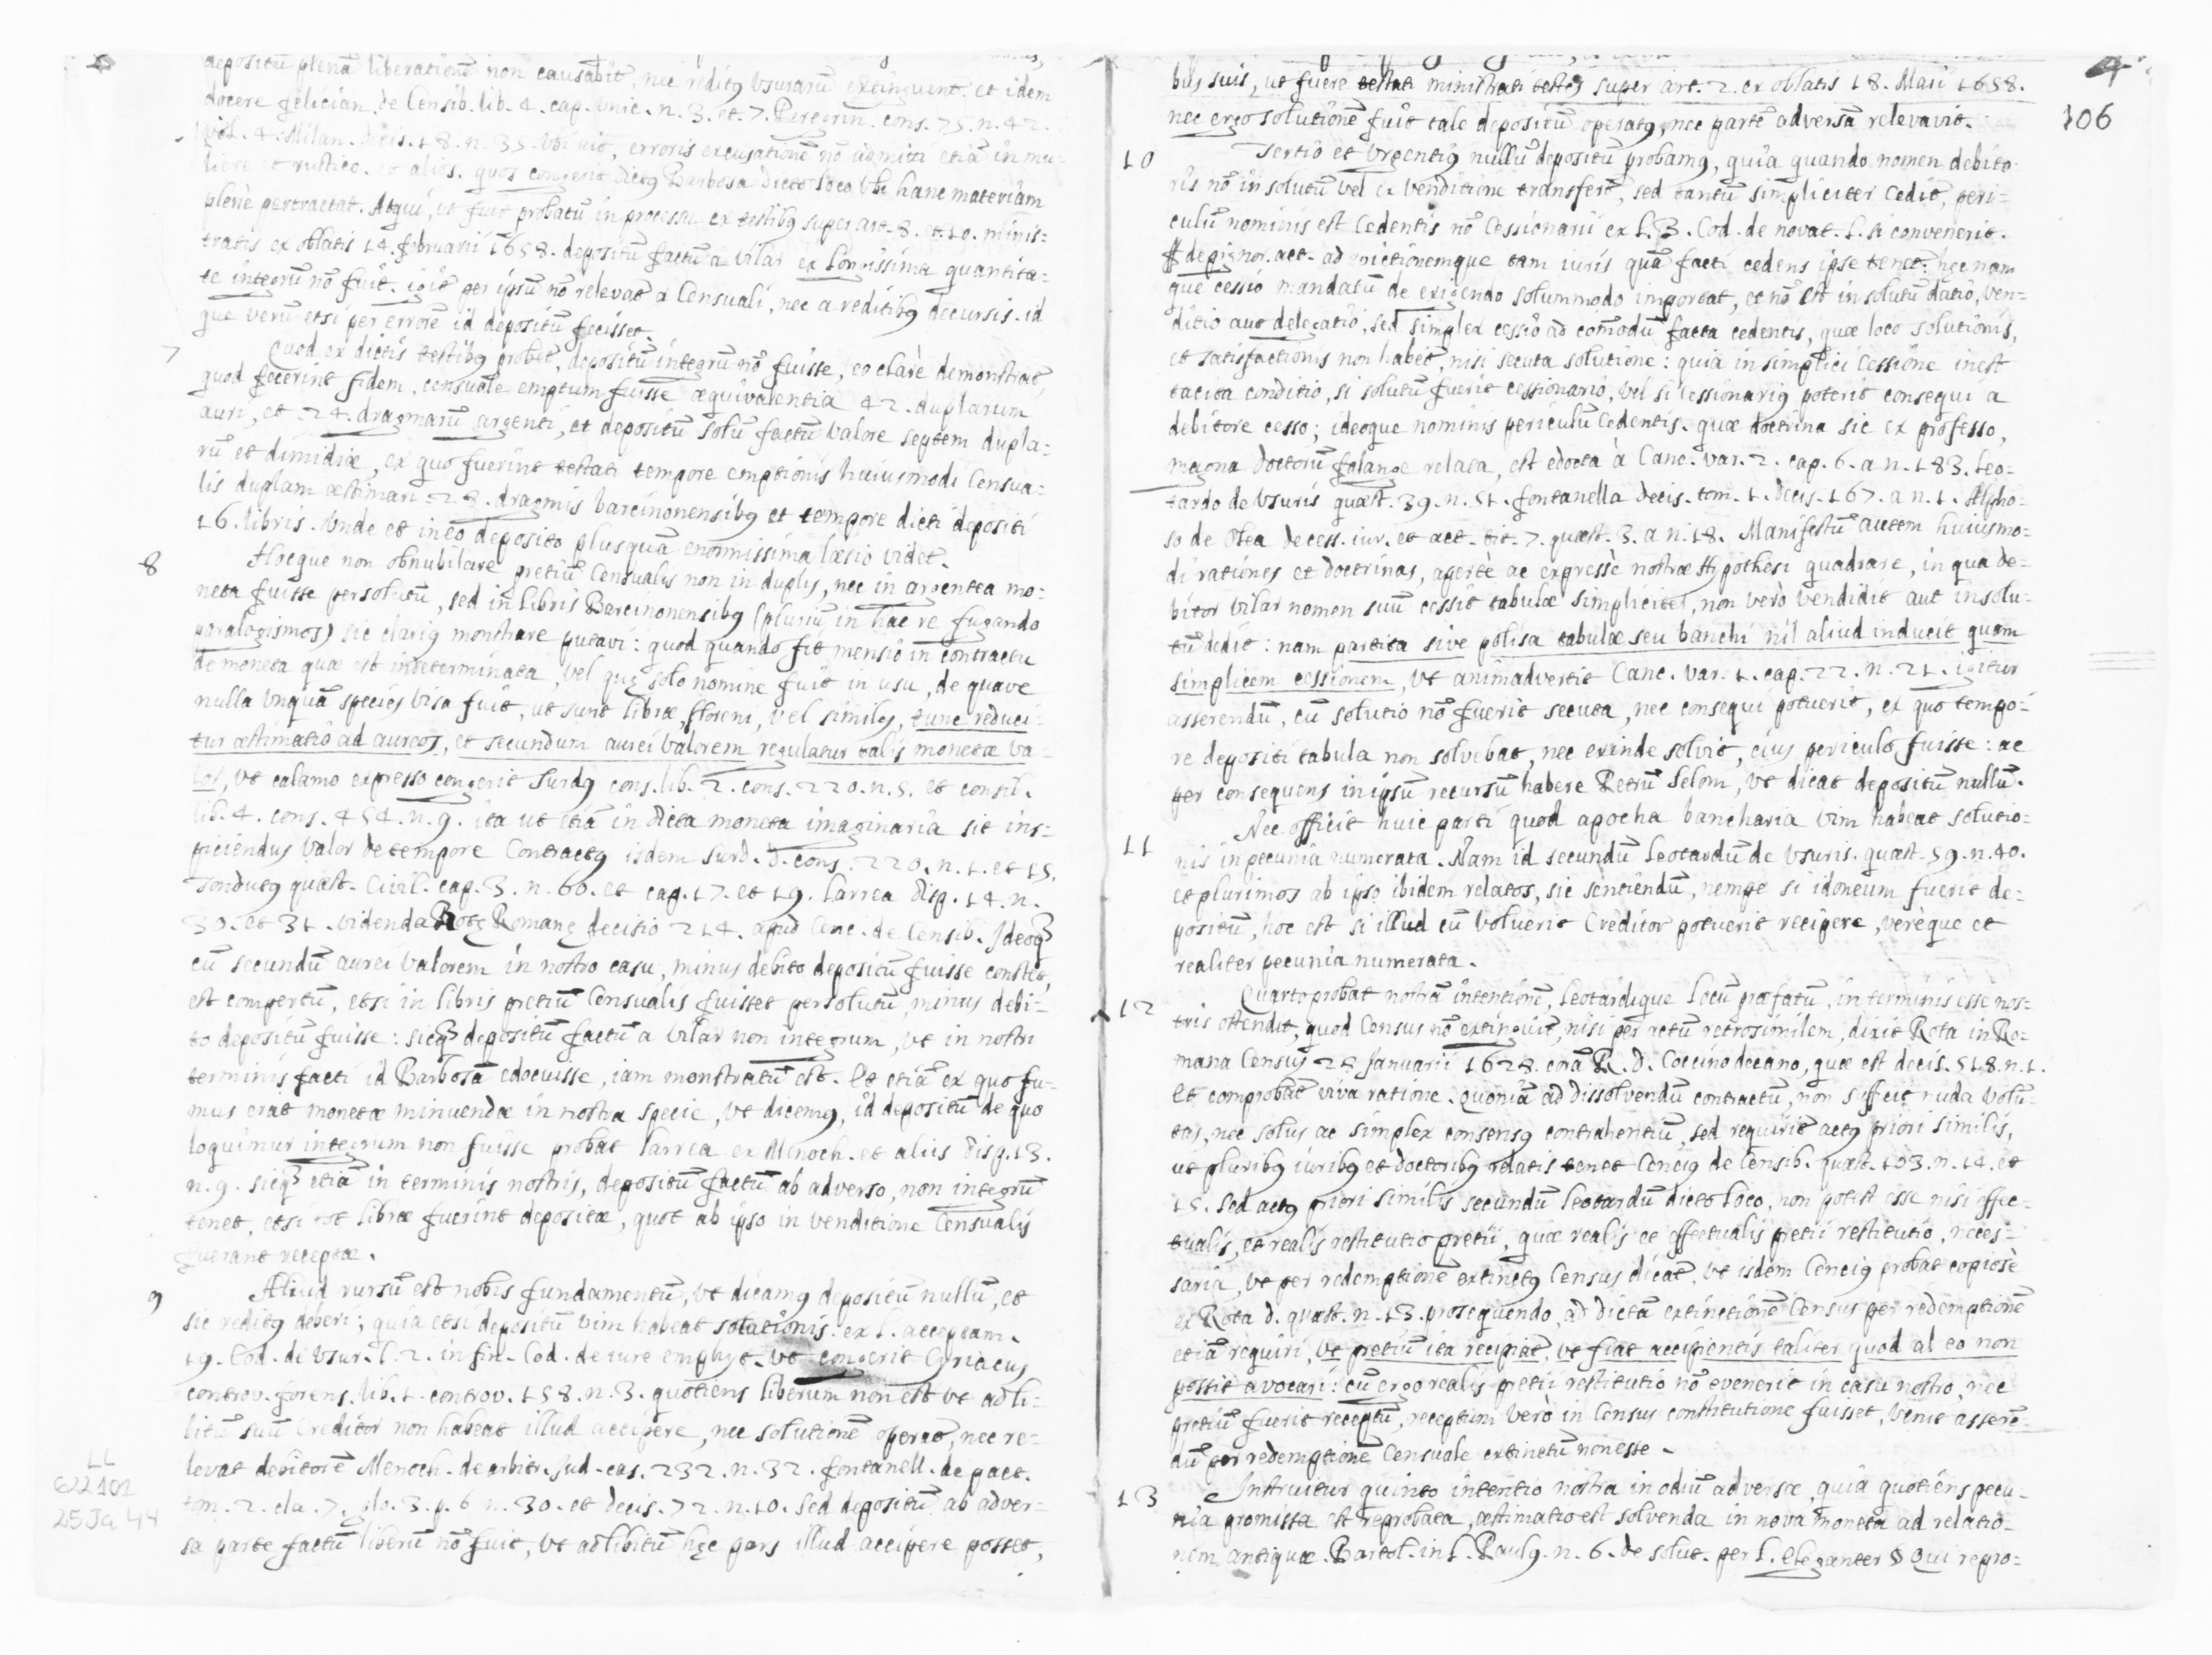 depositū plenā liberationē non causabit, nec reditꝯ usurarū extinguent. et idem
docere felician. de Censib. lib. 4. cap. unic. n. 3. et. 7. Peregrin. cons. 75. n. 42.
vol. 4. Milan. decis. 18. n. 35. Ubi ait, erroris excusationē nō admitti etiā in mu-
liere et rustico. et alios. quos congerit dictꝯ Barbosa dicto loco Ubi hanc materiam
plenè pertractat. Atqui, ut fuit probatū in processu ex testibꝯ super art. 8. et. 10. minis=
tratis ex oblatis 14. februarii 1658. depositū factū a Vilar ex longissima quantita=
te integrū nō fuit. igit̄ per ipsū nō relevat̄ a Censuali, nec a reditibꝯ decursis. id
que verū etsi per errorē id depositū fecisset.
7 Quod ex dictis testibꝯ probet̄, depositū integrū nō fuisse, eo clarè demonstrat̄
quod fecerint fidem, censuale emptum fuisse æquivalentia 42. duplarum
auri, et 24. dragmarū argenti, et depositū solū factū valore septem dupla=
rū et dimidiæ, ex quo fuerint testati tempore emptionis huiusmodi Censua=
lis duplam æstimari 28. dragmis barcinonensibꝯ et tempore dicti depositi
16. libris. Unde et in eo deposito plusquā enormissima læsio videt̄.
8 Hocque non obnubilare pretiū Censualis non in duplis, nec in argentea mo=
neta fuisse persolutū, sed in libris Barcinonensibꝯ (plurīu in hac re fugando
paralogismos) sic clariꝯ monstrare putavi: quod quando fit mensio in contractu
de moneta quæ est indeterminata, vel quę solo nomine fuit in usu, de quave
nulla unquā species visa fuit, ut sunt libræ, floreni, vel similes, tunc reduci=
tur æstimatio ad aureos, et secundum aurei valorem regulatur talis monetæ va-
lor, ut calamo expresso congerit Surdꝯ cons. lib. 2. cons. 220. n. 5. et consil.
lib. 4. cons. 454. n. 9. ita ut etiā in dicta moneta imaginaria sit ins=
piciendus valor de tempore Contractꝯ isdem Surd. d. cons. 220. n. 1. et 15.
Tondutꝯ quæst. Civil. cap. 3. n. 60. et cap. 17. et 19. Larrea disp. 14. n.
30. et 31. videnda Rotę Romanę decisio 214. apud Cenc. de Censib. Ideoq̄
cū secundū aurei valorem in nostro casu, minus debito depositū fuisse constet,
est compertū, etsi in libris pretiū Censualis fuisset persolutū, minus debi-
to depositū fuisse: sicq̄ depositū factū a Vilar non integrum, ut in nostri
terminis facti id Barbosā edocuisse, iam monstratū est. Et etiā ex quo fu-
mus erat monetæ minuendæ in nostra specie, ut dicemꝯ, id depositū de quo
loquimur integrum non fuisse probat Larrea ex Menoch. et aliis disp. 13.
n. 9. sicq̄ etiā in terminis nostris, depositū factū ab adverso, non integrū
tenet, etsi tot libræ fuerint depositæ, quot ab ipso in venditione Censualis
fuerant receptæ.
9 Aliud rursū est nobis fundamentū, ut dicamꝯ depositū nullū, et
sic reditꝯ deberi; quia etsi depositū vim habeat solutionis. ex l. acceptam.
19. Cod. de usur. l. 2. in fin. Cod. de iure emphyt. ut congerit Cyriacus
controv. forens. lib. 1. controv. 158. n. 3. quotiens liberum non est ut ad li-
bitū suū Creditor non habeat illud accipere, nec solutionē operat̄, nec re=
levat debitorē Menoch. de arbitr. Jud. cas. 232. n. 32. fontanell. de pact.
tom. 2. cla. 7. glo. 3. p. 6 n. 30. et decis. 72. n. 10. Sed depositū ab adver-
sa parte factū liberū nō fuit, ut ad libitū hęc pars illud accipere posset,
LL
622101
25 Ja 44
106
bus suis, ut fuere testati ministrati testes super art. 2. ex oblatis 18. Maii 1658.
nec ergo solutionē fuit tale depositū operatꝯ, nec partē adversā relevavit.
10 Tertio et urgentiꝯ nullū depositū probamꝯ, quia quando nomen debito-
ris nō in solutū vel ex venditione transfert̄, sed tantū simpliciter cedit̄, peri=
culū nominis est Cedentis nō Cessionarii ex l. 3. Cod. de novat. l. si convenerit.
ff de pignor. act. ad evictionemque tam iuris quā facti cedens ipse tenet̄: nec nam
que cessio mandatū de exigendo solummodo importat, et nō est in solutū datio, ven=
ditio aut delegatio, sed simplex cessio ad cōmodū facta cedentis, quæ loco solutionis,
et satisfactionis non habet̄, nisi secuta solutione: quia in simplici Cessione inest
tacita conditio, si solutū fuerit cessionario, vel si Cessionariꝯ poterit consequi a
debitore cesso; ideoque nominis periculū Cedentis. quæ doctrina sic ex professo,
magna doctorū falange relata, est edocta à Canc. var. 2. cap. 6. a n. 183. Leo=
tardo de Usuris quæst. 39. n. 51. fontanella decis. tom. 1. decis. 167. a n. 1. Alpho=
so de Olea de cess. iur. et act. tit. 7. quæst. 3. a n. 18. Manifestū autem huiusmo=
di rationes et doctrinas, apertè ac expressè nostræ Hypothesi quadrare, in qua de=
bitor Vilar nomen suū cessit tabulæ simplicitèr, non verò vendidit aut in solu=
tū dedit: nam partita sive polisa tabulæ seu banchi nil aliud inducit quam
simplicem cessionem, ut animadvertit Canc. var. 1. cap. 22. n. 21. igitur
asserendū, cū solutio nō fuerit secuta, nec consequi potuerit, ex quo tempo=
re depositi tabula non solvebat, nec exinde solvit, eius periculo fuisse: ac
per consequens in ipsū recursū habere Petrū Selom, ut dicat depositū nullū.
11 Nec officit huic parti quod apocha bancharia vim habeat solutio=
nis in pecunia numerata. Nam id secundū Leotardū de Usuris. quæst. 59. n. 40.
et plurimos ab ipso ibidem relatos, sic sentiendū, nempe si idoneum fuerit de=
positū, hoc est si illud cū voluerit Creditor potuerit recipere, verèque et
realiter pecunia numerata.
12 Quarto probat nostrā intentionē, Leotardique Locū præfatū, in terminis esse nos-
tris ostendit, quod Census nō extinguit̄, nisi per actū retrosimilem, dixit Rota in Ro-
mana Census 28 Januarii 1628. corā R. D. Coccino decano, quæ est decis. 518. n. 1.
Et comprobat̄ viva ratione. quoniā ad dissolvendū contractū, non sufficit nuda volū-
tas, nec solus ac simplex consensꝯ contrahentiū, sed requirit̄ actꝯ priori similis,
ut pluribꝯ iuribꝯ et doctoribꝯ relatis tenet Cenciꝯ de Censib. quæst. 103. n. 14. et
15. Sed actꝯ priori similis secundū Leotardū dicto Loco, non potest esse nisi effec-
tualis, et realis restitutio pretii, quæ realis et effectualis pretii restitutio, neces=
saria, ut per redemptionē extinctꝯ Census dicat̄, ut isdem Cenciꝯ probat copiosè
ex Rota d. quæst. n. 13. prosequendo, ad dictā extinctionē Census per redemptionē
etiā requiri, ut pretiū ita recipiat̄, ut fiat accipientis taliter quod ab eo non
possit avocari: cū ergo realis pretii restitutio nō evenerit in casu nostro, nec
pretiū fuerit receptū, receptum verò in Census constitutione fuisset, venit asserē-
dū per redemptionē Censuale extinctū non esse.
13 Instruitur quinto intentio nostra in odiū adversæ, quia quotiens pecu-
nia promissa est reprobata, æstimatio est solvenda in nova moneta ad relatio-
nem antiquæ. Bartol. in l. Paulꝯ. n. 6. de solut. per l. eleganter § Qui repro=